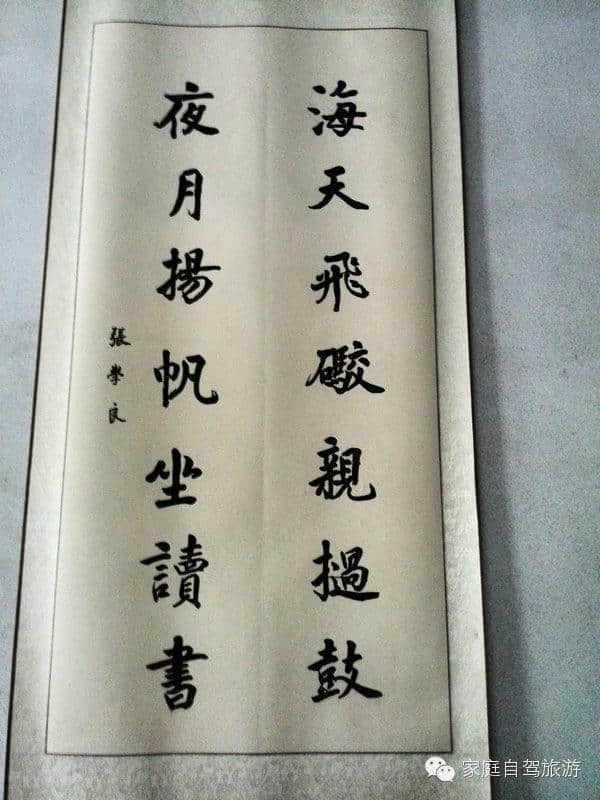 海天飛礮親撾鼓
夜月揚帆坐讀書
張學良
家庭自驾旅游